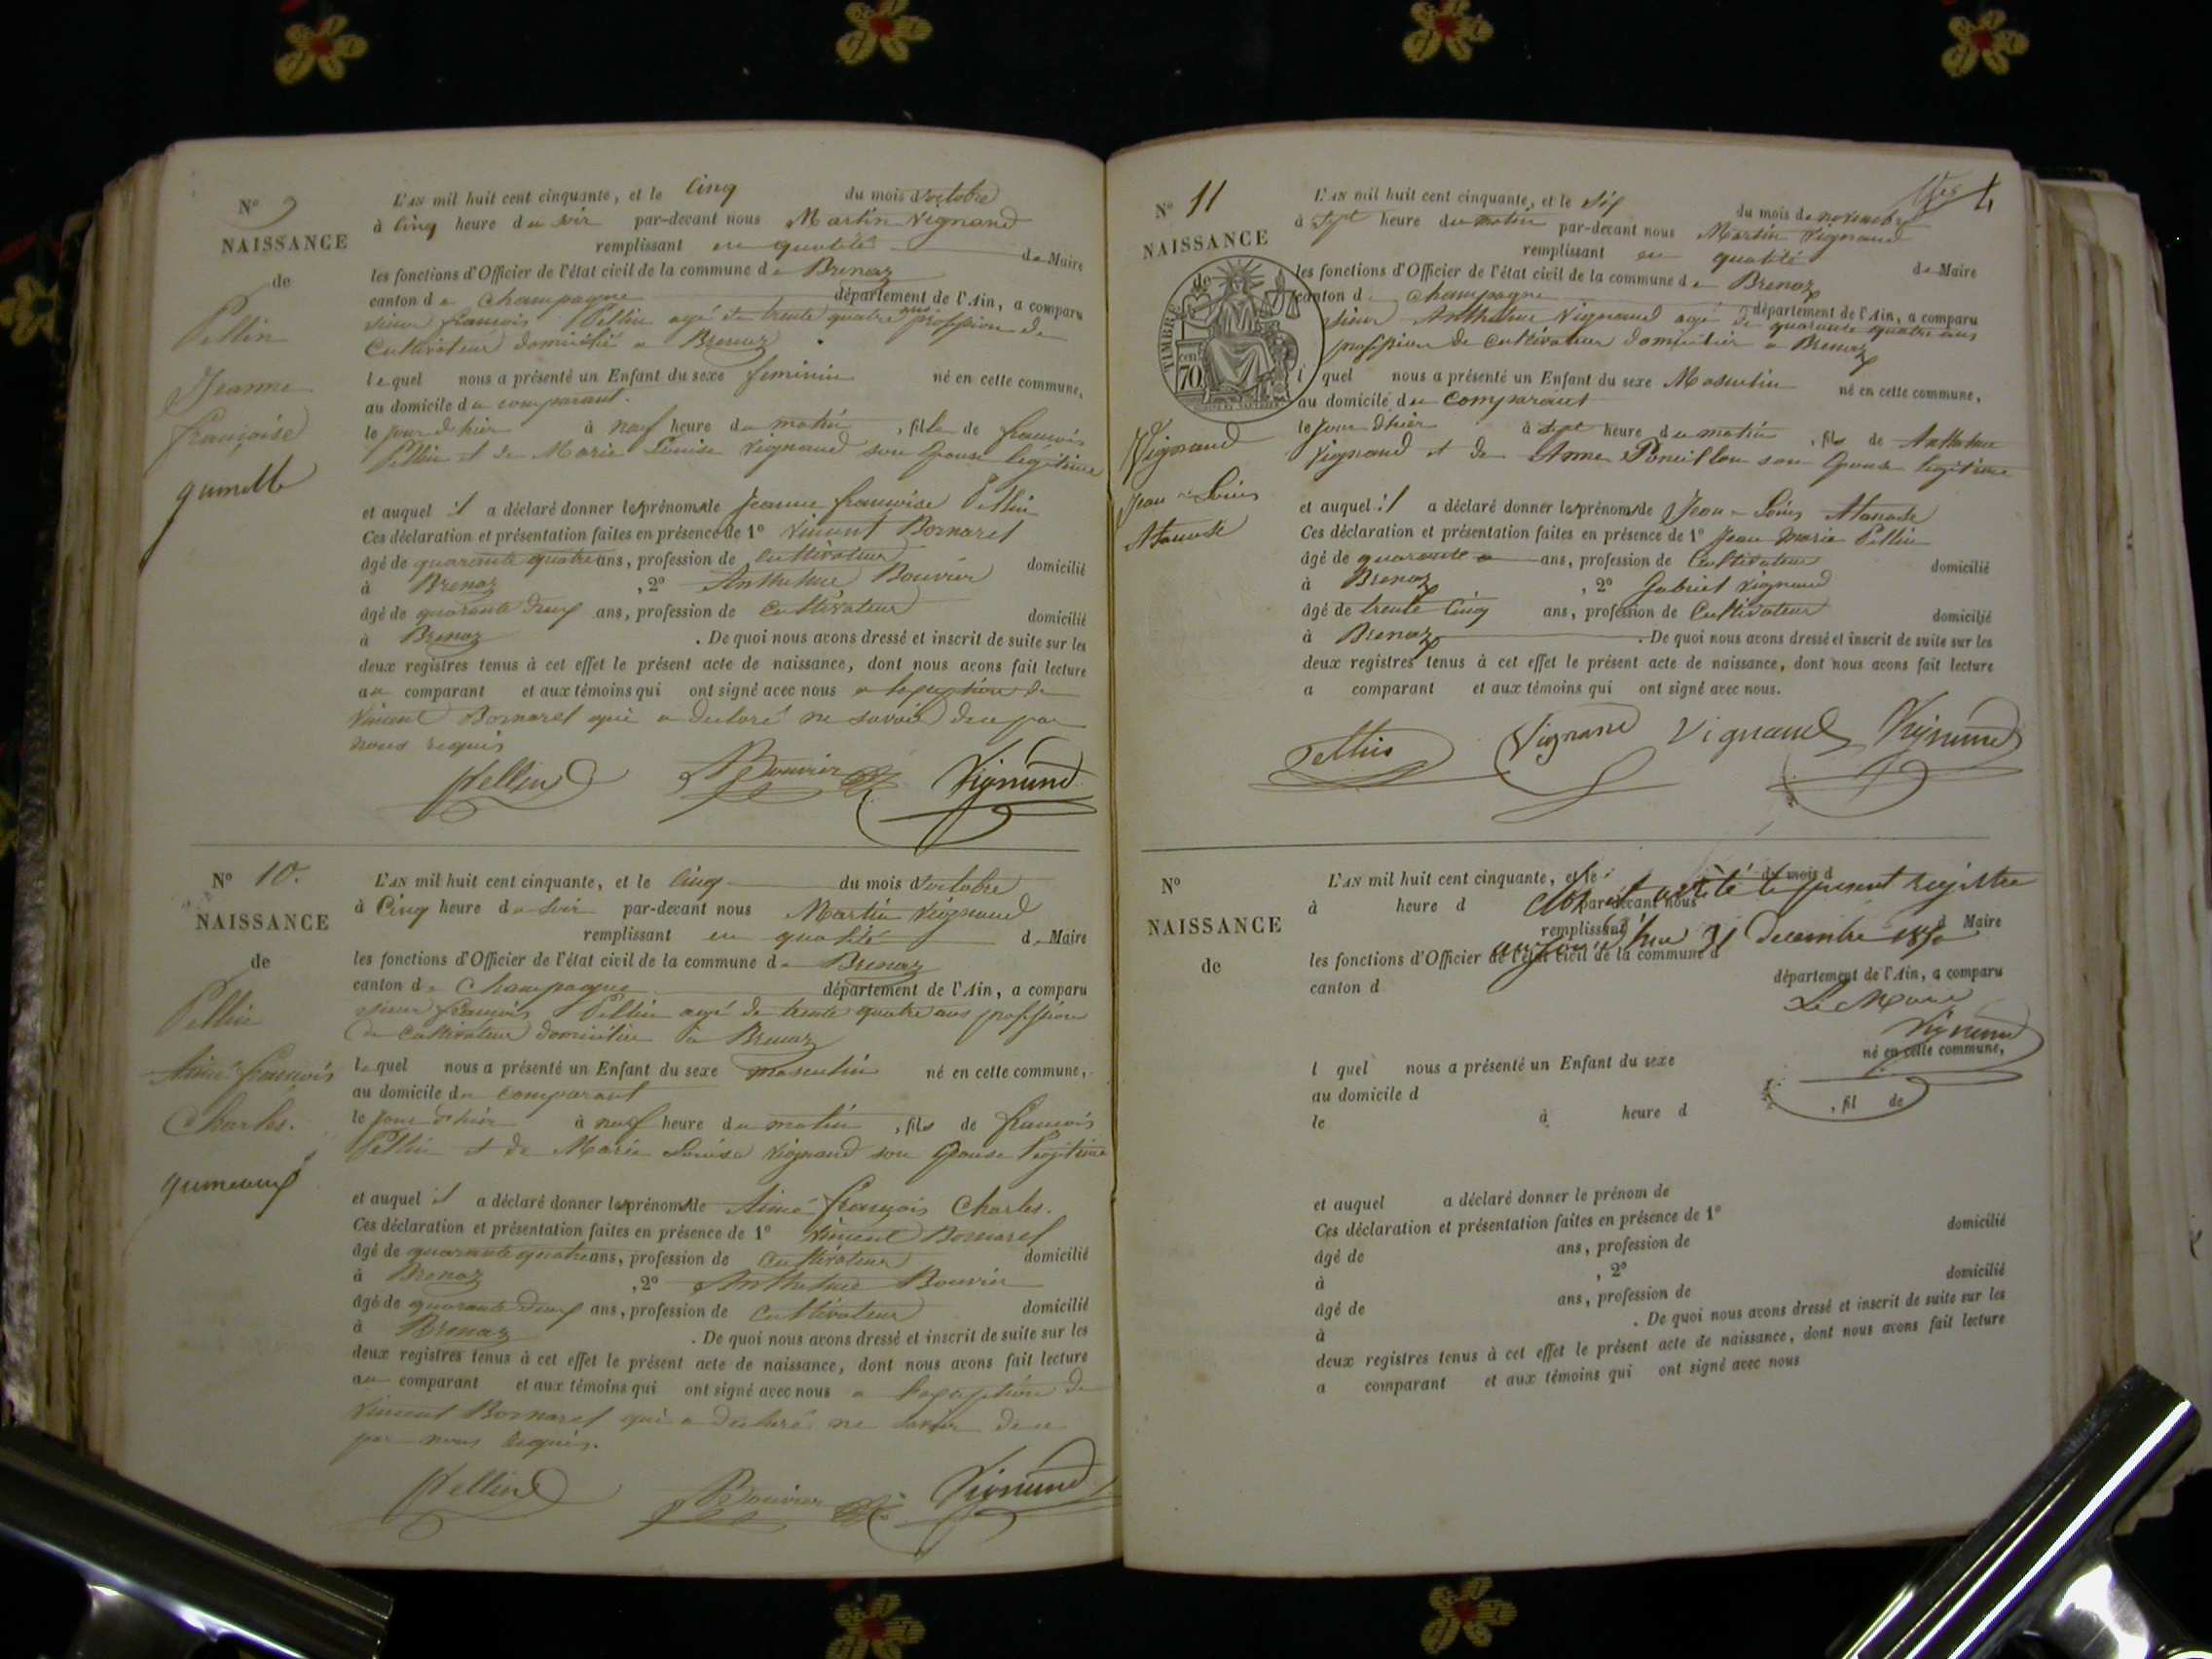 N° 9
NAISSANCE
de
Pellin
Jeanne
françoise
gumelle
L'AN mil huit cent cinquante, et le Cinq du mois d'octobre
à Cinq heure du soir par-devant nous Martin Vignand
remplissant en qualité de Maire
les fonctions d'Officier de l'état civil de la commune de Brenaz
canton de Champagne département de l'Ain, a comparu
sieur françois Pellin agé de trente quatre ans profession de
Cultivateur domicilié a Brenaz
lequel nous a présenté un Enfant du sexe feminin né en cette commune,
au domicile du comparant.
le jour d'hier à neuf heure du matin, fille de françois
Pellin et de Marie Louise Vignand son Epouse legitime
et auquel il a déclaré donner les prénoms de Jeanne françoise Pellin
Ces déclaration et présentation faites en présence de 1° Vincent Bornarel
âgé de quarante quatre ans, profession de Cultivateur domicilié
à Brenaz, 2° Anthelme Bouvier
âgé de quarante deux ans, profession de Cultivateur domicilié
à Brenaz. De quoi nous avons dressé et inscrit de suite sur les
deux registres tenus à cet effet le présent acte de naissance, dont nous avons fait lecture
au comparant et aux témoins qui ont signé avec nous a l'exception de
Vincent Bornarel qui a declaré ne savoir de ce par
nous requis
Pellin Bouvier Vignand
N° 10.
NAISSANCE
de
Pellin
Aimé françois
Charles.
gumeaux
L'AN mil huit cent cinquante, et le Cinq du mois d'octobre
à Cinq heure du soir par-devant nous Martin Vignand
remplissant en qualité de Maire
les fonctions d'Officier de l'état civil de la commune de Brenaz
canton de Champagne département de l'Ain, a comparu
sieur françois Pellin agé de trente quatre ans profession
de Cultivateur domicilié a Brenaz
lequel nous a présenté un Enfant du sexe masculin né en cette commune,
au domicile du comparant
le jour d'hier à neuf heure du matin, fils de françois
Pellin et de Marie Louise Vignand son Epouse legitime
et auquel il a déclaré donner les prénoms de Aimé françois Charles.
Ces déclaration et présentation faites en présence de 1° Vincent Bornarel
âgé de quarante quatre ans, profession de Cultivateur domicilié
à Brenaz, 2° Anthelme Bouvier
âgé de quarante deux ans, profession de Cultivateur domicilié
à Brenaz. De quoi nous avons dressé et inscrit de suite sur les
deux registres tenus à cet effet le présent acte de naissance, dont nous avons fait lecture
au comparant et aux témoins qui ont signé avec nous a l'exception de
Vincent Bornarel qui a declaré ne savoir de ce
par nous requis.
Pellin Bouvier Vignand
4
N° 11
NAISSANCE
de
TIMBRE
70 cen
Vignand
Jean-Louis
L'AN mil huit cent cinquante, et le Six du mois de novembre
à Sept heure du matin par-devant nous Martin Vignand
remplissant en qualité de Maire
les fonctions d'Officier de l'état civil de la commune de Brenaz
canton d Champagne département de l'Ain, a comparu
sieur Anthelme Vignand agé de quarante quatre ans
profession de Cultivateur domicilier a Brenaz
l quel nous a présenté un Enfant du sexe Masculin né en cette commune,
au domicile du Comparant
le jour d'hier à Sept heure du matin, fils de Anthelme
Vignand et de Anne Poncillon son Epouse legitime
et auquel il a déclaré donner les prénoms de Jean-Louis
Ces déclaration et présentation faites en présence de 1° Jean Marie Pellin
âgé de quarante ans, profession de Cultivateur domicilié
à Brenaz, 2° Gabriel Vignand
âgé de trente Cinq ans, profession de Cultivateur domicilié
à Brenaz. De quoi nous avons dressé et inscrit de suite sur les
deux registres tenus à cet effet le présent acte de naissance, dont nous avons fait lecture
a comparant et aux témoins qui ont signé avec nous.
Pellin Vignand Vignand Vignand
N°
NAISSANCE
de
L'AN mil huit cent cinquante, et le du mois d
Clos et arrêté le present registre
à heure d par-devant nous
remplissant d Maire
aujourd'hui 31 decembre 1850
les fonctions d'Officier de l'état civil de la commune d
canton d département de l'Ain, a comparu
Le Maire
Vignand
l quel nous a présenté un Enfant du sexe né en cette commune,
au domicile d
le à heure d , fil de
et auquel a déclaré donner le prénom de
Ces déclaration et présentation faites en présence de 1°
âgé de ans, profession de domicilié
à , 2°
âgé de ans, profession de domicilié
à . De quoi nous avons dressé et inscrit de suite sur les
deux registres tenus à cet effet le présent acte de naissance, dont nous avons fait lecture
a comparant et aux témoins qui ont signé avec nous